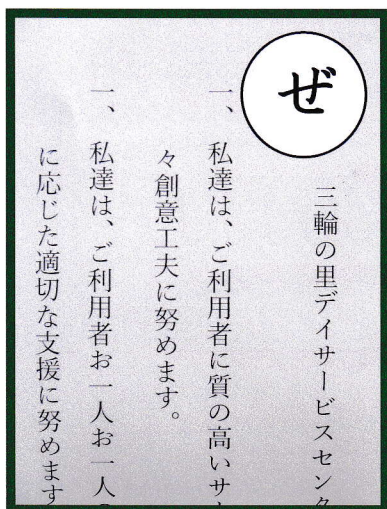 ぜ
三輪の里デイサービスセンタ
一、私達は、ご利用者に質の高いサ
々創意工夫に努めます。
一、私達は、ご利用者お一人お一人の
に応じた適切な支援に努めます